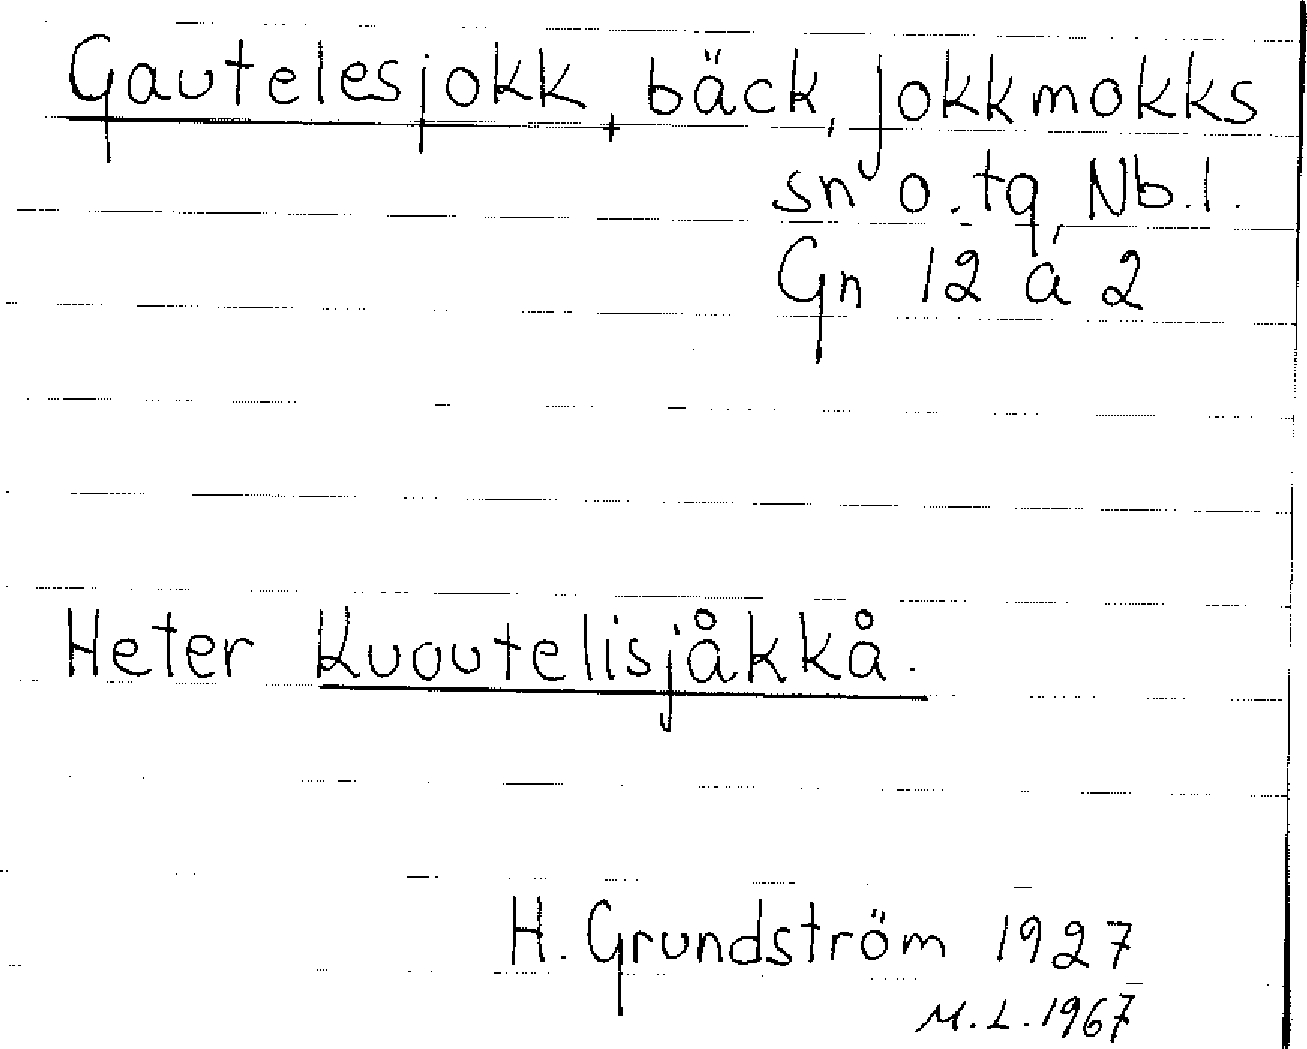 Gautelesjokk, bäck, Jokkmokks
sn o. tg, Nb.l.
Gn 12 a 2
Heter Kuoutelisjåkkå.
H. Grundström 1927
M.L. 1967